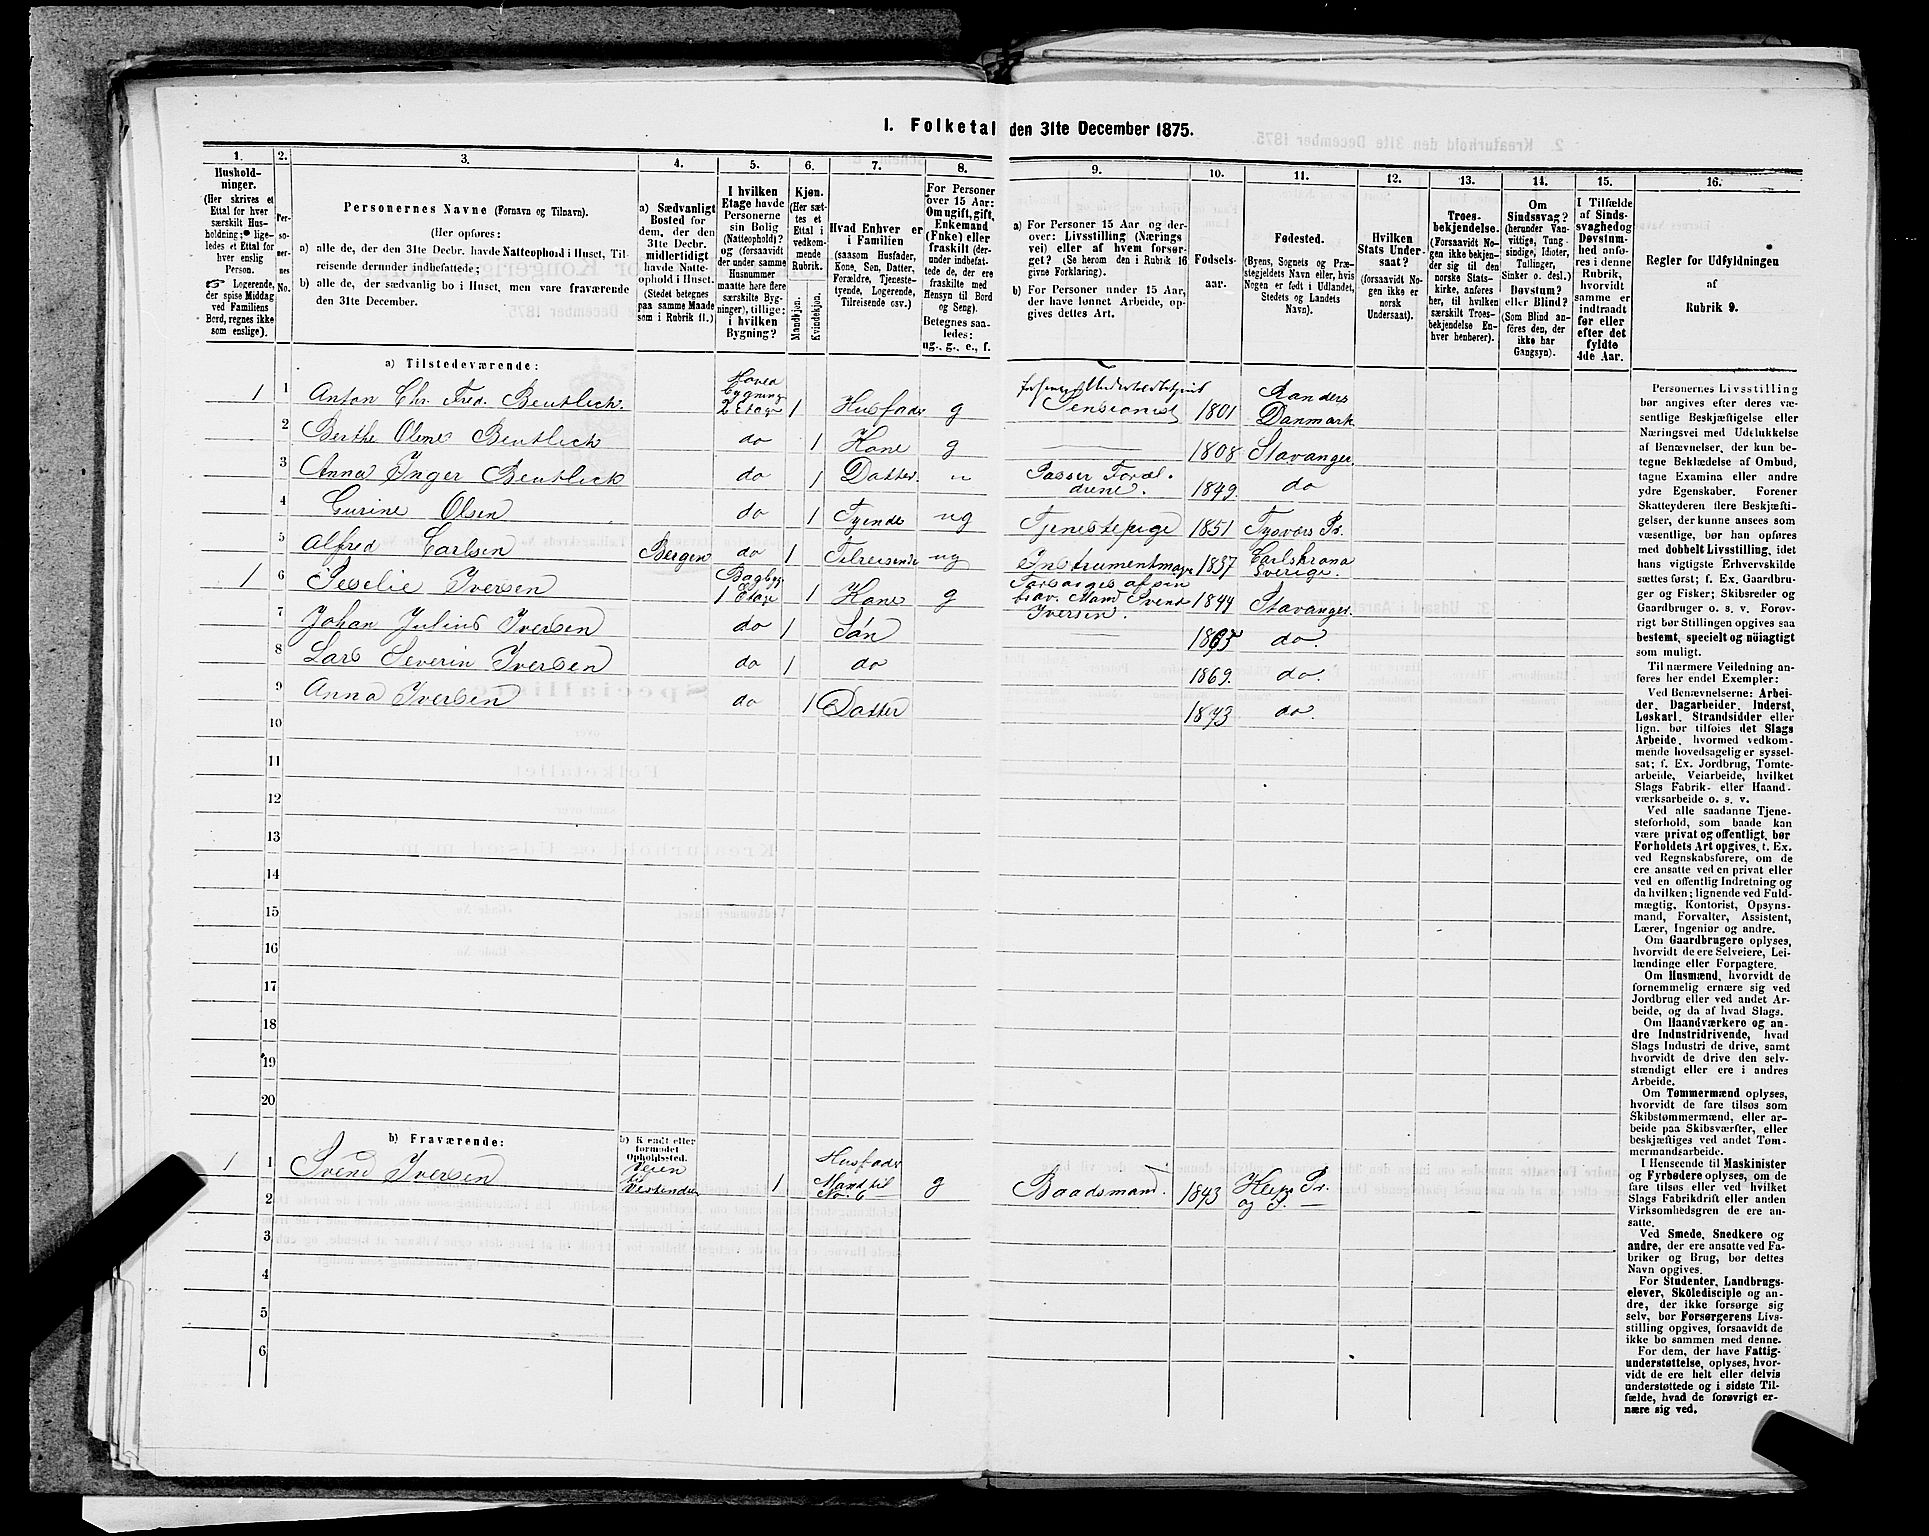 I. Folketal den 31te December 1875.
1.
Hushold-
ninger.
(Her skrives et
Ettal for hver
særskilt Hus-
holdning; lige-
ledes et Ettal for
hver enslig
Person.
☞ Logerende,
der spise Middag
ved Familiens
Bord, regnes ikke
som enslige).
2.
Per-
so-
ner-
nes
No.
3.
Personernes Navne (Fornavn og Tilnavn).
(Her opføres:
a) alle de, der den 31te Decbr. havde Natteophold i Huset, Til-
reisende derunder indbefattede;
b) alle de, der sædvanlig bo i Huset, men vare fraværende
den 31te December.
4.
a) Sædvanligt
Bosted for
dem, der den
31te Decbr.
midlertidigt
havde Natte-
ophold i Huset.
(Stedet betegnes
paa samme Maade
som i Rubrik 11.)
5.
I hvilken
Etage havde
Personerne
sin Bolig
(Natteophold)?
og (forsaavidt
der under samme
Husnummer
maatte høre flere
særskilte Byg-
ninger), tillige:
i hvilken
Bygning?
6.
Kjøn.
(Her sæt-
tes et
Ettal i
vedkom-
mende
Rubrik.
Mandkjøn.
Kvindekjøn.
7.
Hvad Enhver er
i Familien
(saasom Husfader,
Kone, Søn, Datter,
Forældre, Tjeneste-
tyende, Logerende,
Tilreisende osv.)
8.
For Personer
over 15 Aar:
Om ugift, gift,
Enkemand
(Enke) eller
fraskilt (der-
under indbefat-
tede de, der ere
fraskilte med
Hensyn til Bord
og Seng).
Betegnes saa-
ledes:
ug., g., e., f.
9.
a) For Personer 15 Aar og der-
over: Livsstilling (Nærings
vei) eller af hvem forsør-
get? (Se herom den i Rubrik 16
givne Forklaring).
b) For Personer under 15 Aar,
der have lønnet Arbeide, op-
gives dettes Art.
10.
Fødsels-
aar.
11.
Fødested.
(Byens, Sognets og Præ-
stegjeldets Navn eller, hvis
Nogen er født i Udlandet,
Stedets og Landets
Navn).
12.
Hvilken
Stats Under-
saat?
(forsaavidt No-
gen ikke er
norsk
Undersaat).
13.
Troes-
bekjendelse.
(Forsaavidt No-
gen ikke bekjen-
der sig til den
norske Stats-
kirke, anføres
her, til hvilken
særskilt Troes-
bekjendelse En-
hver henhører).
14.
Om
Sindssvag?
(herunder Van-
vittige, Tung-
sindige, Idioter,
Tullinger,
Sinker o. desl.)
Døvstum?
eller Blind?
(Som Blind an-
føres den, der
ikke har
Gangsyn).
15.
I Tilfælde
af Sinds-
svaghed og
Døvstum-
hed anfø-
res i denne
Rubrik,
hvorvidt
samme er
indtraadt
før eller
efter det
fyldte
4de Aar.
16.
Regler for Udfyldningen
af
Rubrik 9.
a) Tilstedeværende:
1 1 Anton Chr. Fred. Bentlich. Hoved bygning 2 Etage 1 Husfader g Pensionist 1801 Randers Danmark
2 Berthe Olene Bentlich do 1 Kone g — 1808 Stavanger.
3 Anna Inger Bentlich do 1 Datter. Passer Foræl- drene. 1849. do
4 Gurine Olsen do 1 Tyende ug Tjenestepige 1851 Tysvær Pr.
5 Alfred Carlsen Bergen do 1 Tilreisende ug Instrumentmager 1837 Carlskrona Sverige.
1 6 Iversen Bagbyg 1 Etage 1 Kone g Forsørges af sin frav. Mand Svend Iversen. 1844 Stavanger
7 Johan Julius Iversen do 1 Søn — do.
8 Lars Severin Iversen do 1 do 1869. do.
9 Anna Iversen do 1 Datter 1873 do.
10
11
12
13
14
15
16
17
18
19
20
b) Fraværende:
b) Kjendt eller
formodet
Opholdssted.
1 1 Svend Iversen Veien til 1 Husfader Mand til No. 6 g Baadsmand. 1843 Klep Pr. og S. —
2
3
4
5
6
Personernes Livsstilling
bør angives efter deres væ-
sentlige Beskjæftigelse eller
Næringsvei med Udelukkelse
af Benævnelser, der kun be-
tegne Beklædelse af Ombud,
tagne Examina eller andre
ydre Egenskaber. Forener
Skatteyderen flere Beskjæfti-
gelser, der kunne ansees som
væsentlige, bør han opføres
med dobbelt Livsstilling, idet
hans vigtigste Erhvervskilde
sættes først; f. Ex. Gaardbru-
ger og Fisker; Skibsreder og
Gaardbruger o. s. v. Forøv-
rigt bør Stillingen opgives saa
bestemt, specielt og nöiagtigt
som muligt.
Til nærmere Veiledning an-
føres her endel Exempler:
Ved Benævnelserne: Arbei-
der, Dagarbeider, Inderst,
Løskarl, Strandsidder eller
lign. bør tilføies det Slags
Arbeide, hvormed vedkom-
mende hovedsagelig er syssel-
sat; f. Ex. Jordbrug, Tomte-
arbeide, Veiarbeide, hvilket
Slags Fabrik- eller Haand-
værksarbeide o. s. v.
Ved alle saadanne Tjene-
steforhold, som baade kan
være privat og offentligt, bør
Forholdets Art opgives, t. Ex.
ved Regnskabsførere, om de
ere ansatte ved en privat eller
ved en offentlig Indretning og
da hvilken; lignende ved Fuld-
mægtig, Kontorist, Opsyns-
mand, Forvalter, Assistent,
Lærer, Ingeniør og andre.
Om Gaardbrugere oplyses,
hvorvidt de ere Selveiere, Lei-
lændinge eller Forpagtere.
Om Husmænd, hvorvidt de
fornemmelig ernære sig ved
Jordbrug eller ved andet Ar-
beide, og da af hvad Slags.
Om Haandværkere og an-
dre Industridrivende, hvad
Slags Industri de drive, samt
hvorvidt de drive den selv-
stændigt eller ere i andres
Arbeide.
Om Tømmermænd oplyses,
hvorvidt de fare tilsøs som
Skibstømmermænd, eller ar-
beide paa Skibsværfter, eller
beskjæftiges ved andet Tøm-
mermandsarbeide.
I Henseende til Maskinister
og Fyrbødere oplyses, om de
fare tilsøs eller ved hvilket
Slags Fabrikdrift eller anden
Virksomhedsgren de ere an-
satte.
Ved Smede, Snedkere og
andre, der ere ansatte ved Fa-
briker og Brug, bør dettes
Navn opgives.
For Studenter, Landbrugs-
elever, Skoledisciple og an-
dre, der ikke forsørge sig
selv, bør Forsørgerens Livs-
stilling opgives, forsaavidt de
ikke bo sammen med denne.
For dem, der have Fattig-
understøttelse, oplyses, hvor-
vidt de ere helt eller delvis
understøttede og i sidste Til-
fælde, hvad de forøvrigt er-
nære sig ved.